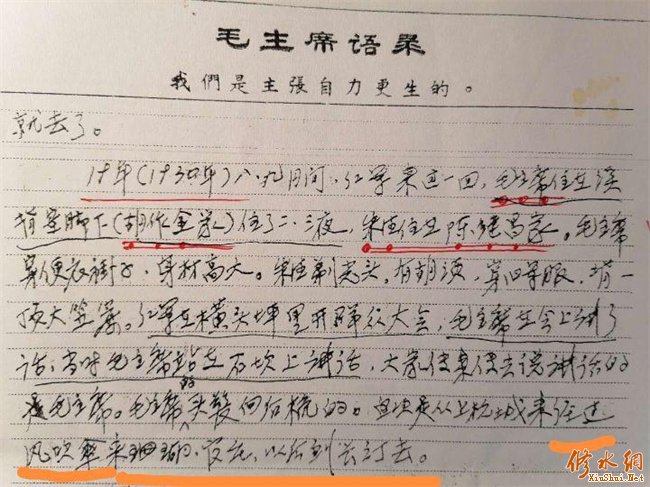 毛主席语录
我們是主張自力更生的。
就去了。
19年(1930年)八.九月间,红军来过一回,毛主席住在
脚下(胡作金家)住了二.三夜,朱德住在陈继昌家。毛主席
穿便衣褂子,身材高大。朱德剃光头,有胡须,穿旧军服,背一
顶大笠篷。红军在横头埠里开群众大会,毛主席在会上讲了
话,当时毛主席站在石坎上讲话,大家传来传去说讲话的
是毛主席。毛主席的头发向后梳的。是从上杭城来经过
风吹 以后到长 过去。
修水網
XiuShui.Net